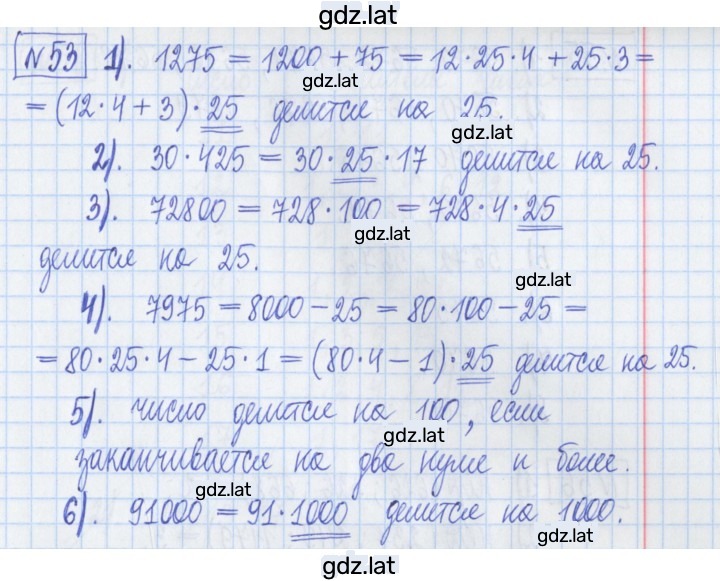 gdz.lat
№53 1). 1275 = 1200 + 75 = 12·25·4 + 25·3 =
gdz.lat
= (12·4 + 3)·25 делится на 25.
gdz.lat
2). 30·425 = 30·25·17 делится на 25.
3). 72800 = 728·100 = 728·4·25
gdz.lat
делится на 25.
gdz.lat
4). 7975 = 8000 − 25 = 80·100 − 25 =
= 80·25·4 − 25·1 = (80·4 − 1)·25 делится на 25.
5). число делится на 100, если
gdz.lat
заканчивается на два нуля и более.
gdz.lat
6). 91000 = 91·1000 делится на 1000.
gdz.lat
gdz.lat